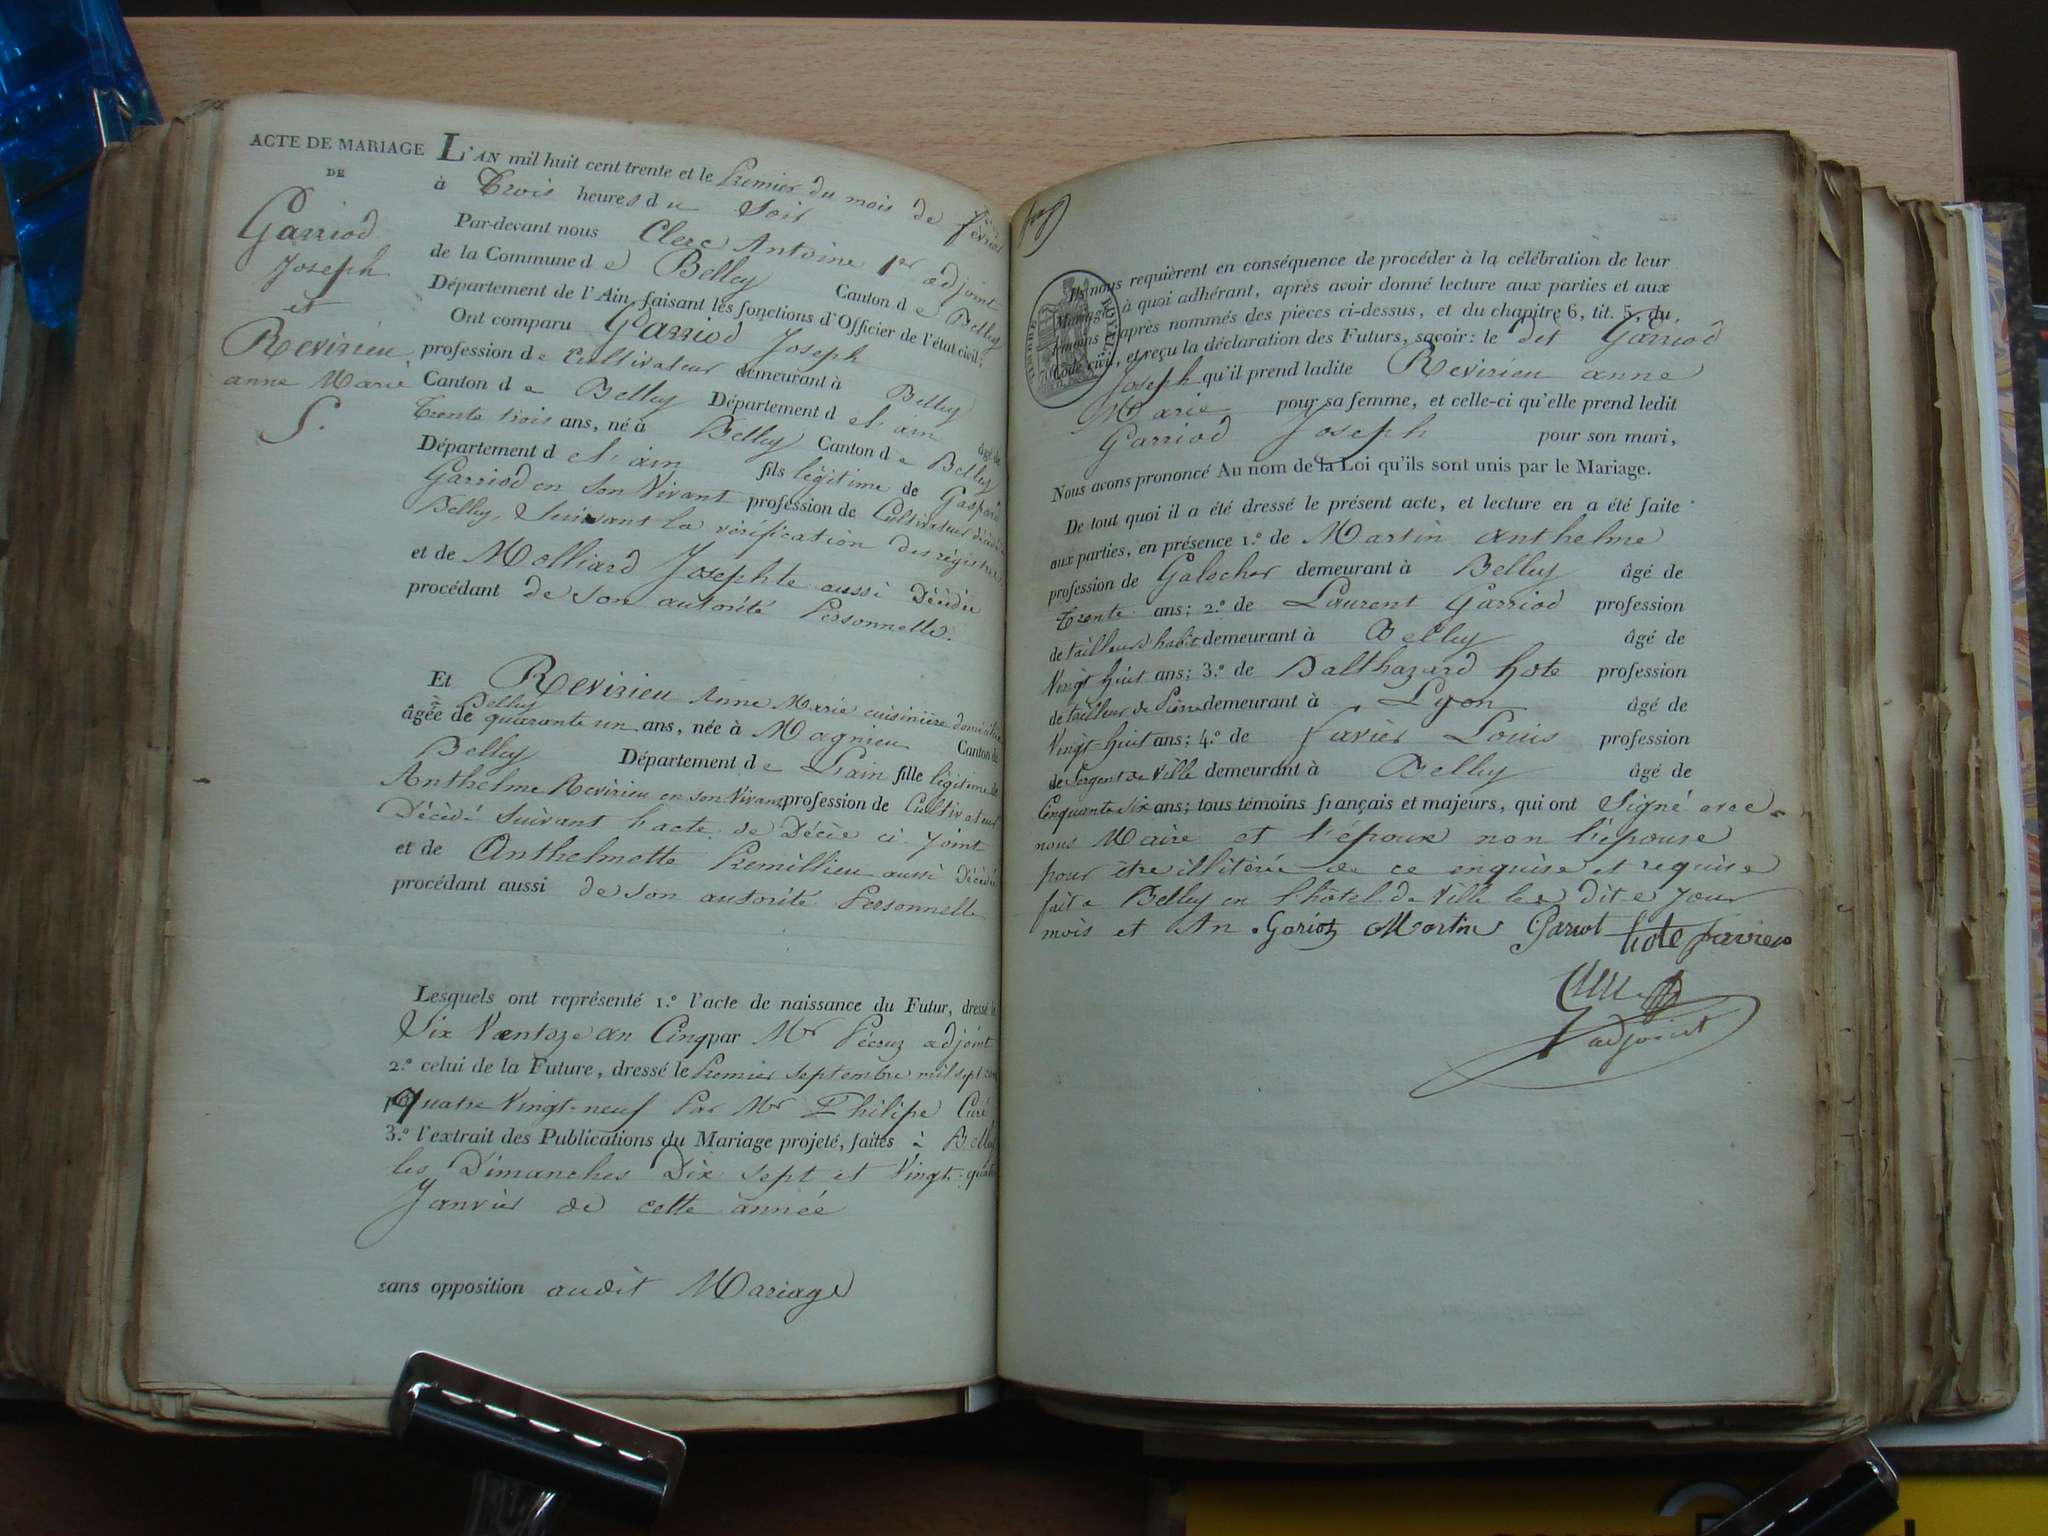 ACTE DE MARIAGE
DE
Garriod
Joseph
et
Revirieu
anne Marie
S.
L'AN mil huit cent trente et le Premier du mois de février
à Trois heures du Soir
Par-devant nous Clerc Antoine 1er adjoint
de la Commune de Belley Canton de Belley
Département de l'Ain, faisant les fonctions d'Officier de l'état civil;
Ont comparu Garriod Joseph
profession de Cultivateur demeurant à Belley
Canton de Belley Département de l'ain âgé de
Trente trois ans, né à Belley Canton de Belley
Département de l'ain fils légitime de Gaspard
Garriod en Son Vivant profession de Cultivateur décédé à
Belley, Suivant la vérification des régistres
et de Molliard Josephte aussi Décédée
procédant de Son autorité Personnelle.
Et Revirieu Anne Marie cuisinière domiciliée
à Belley
âgée de quarante un ans, née à Magnieu Canton de
Belley Département de L'ain fille légitime de
Anthelme Revirieu en son Vivant profession de Cultivateur
Décédé Suivant l'acte de Décès ci Joint
et de Anthelmette Premillieu aussi Décédée
procédant aussi de Son autorité Personnelle
Lesquels ont représenté 1.º l'acte de naissance du Futur, dressé le
Six Ventoze an Cinq par Mr Pécruz adjoint
2.º celui de la Future, dressé le Premier Septembre mil sept cent
quatre Vingt-neuf Par Mr Philipe Curé
3.º l'extrait des Publications du Mariage projeté, faites à Belley
les Dimanches Dix Sept et Vingt-quatre
Janvier de cette année
sans opposition audit Mariage
TIMBRE ROYAL
Ils nous requièrent en conséquence de procéder à la célébration de leur
Mariage, à quoi adhérant, après avoir donné lecture aux parties et aux
témoins après nommés des pièces ci-dessus, et du chapitre 6, tit. 5, du
Code civil, et reçu la déclaration des Futurs, savoir: le dit Garriod
Joseph qu'il prend ladite Revirieu anne
Marie pour sa femme, et celle-ci qu'elle prend ledit
Garriod Joseph pour son mari,
Nous avons prononcé Au nom de la Loi qu'ils sont unis par le Mariage.
De tout quoi il a été dressé le présent acte, et lecture en a été faite
aux parties, en présence 1.º de Martin anthelme
profession de Galocher demeurant à Belley âgé de
Trente ans; 2.º de Laurent Garriod profession
de tailleur d'habit demeurant à Belley âgé de
Vingt huit ans; 3.º de Balthazard hote profession
de tailleur de Pierre demeurant à Lyon âgé de
Vingt-huit ans; 4.º de favier Louis profession
de Sergent de Ville demeurant à Belley âgé de
Cinquante Six ans; tous témoins français et majeurs, qui ont Signé avec
nous Maire et l'époux non l'épouse
pour être illitérée de ce enquise et requise
fait a Belley en l'hôtel de Ville les dit e Jour
mois et An. Goriot Martin Garriot hote favier
adjoint